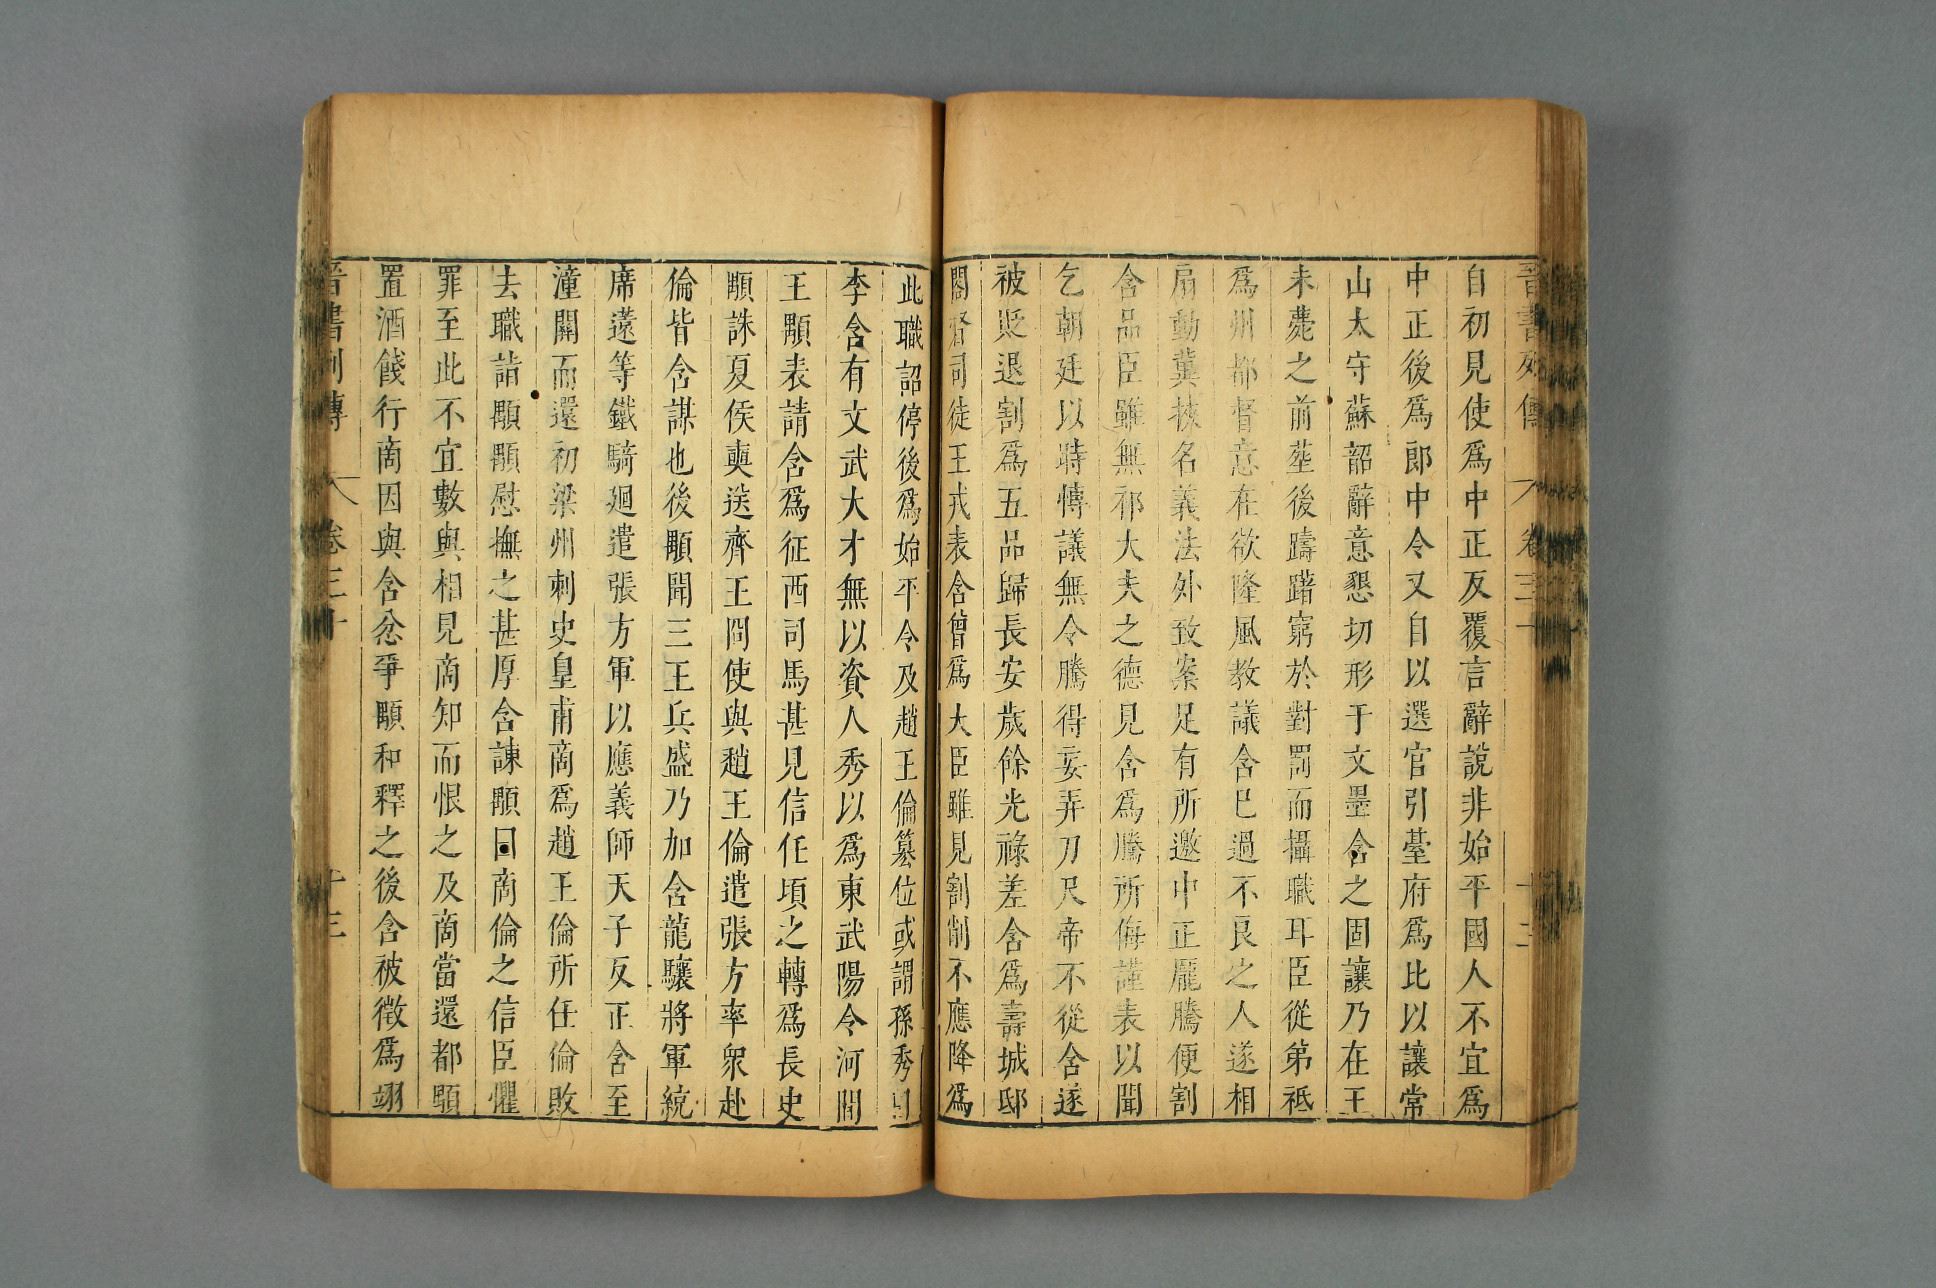 晉書列傳 卷三十 十二
自初見使爲中正反覆言辭說非始平國人不宜爲
中正後爲郎中令又自以選官引臺府爲比以讓常
山太守蘇韶辭意懇切形于文墨含之固讓乃在王
未薨之前塟後躊躇窮於對罰而攝職耳臣從弟祗
爲州都督意在欲隆風教議含已過不良之人遂相
扇動冀挾名義法外致案足有所邀中正龎騰便割
含品臣雖無祁大夫之德見含爲騰所侮謹表以聞
乞朝廷以時博議無令騰得妄弄刀尺帝不從含遂
被貶退割爲五品歸長安歲餘光祿差含爲壽城邸
閣督司徒王戎表含曾爲大臣雖見割削不應降爲
此職詔停後爲始平令及趙王倫簒位或謂孫秀曰
李含有文武大才無以資人秀以爲東武陽令河間
王顒表請含爲征西司馬甚見信任頃之轉爲長史
顒誅夏侯奭送齊王冏使與趙王倫遣張方率衆赴
倫皆含謀也後顒聞三王兵盛乃加含龍驤將軍統
席薳等鐵騎廻遣張方軍以應義師天子反正含至
潼關而還初梁州刺史皇甫商爲趙王倫所任倫敗
去職詣顒顒慰撫之甚厚含諫顒曰商倫之信臣懼
罪至此不宜數與相見商知而恨之及商當還都顒
置酒餞行商因與含忿爭顒和釋之後含被徵爲翊
晉書列傳 卷三十 十三